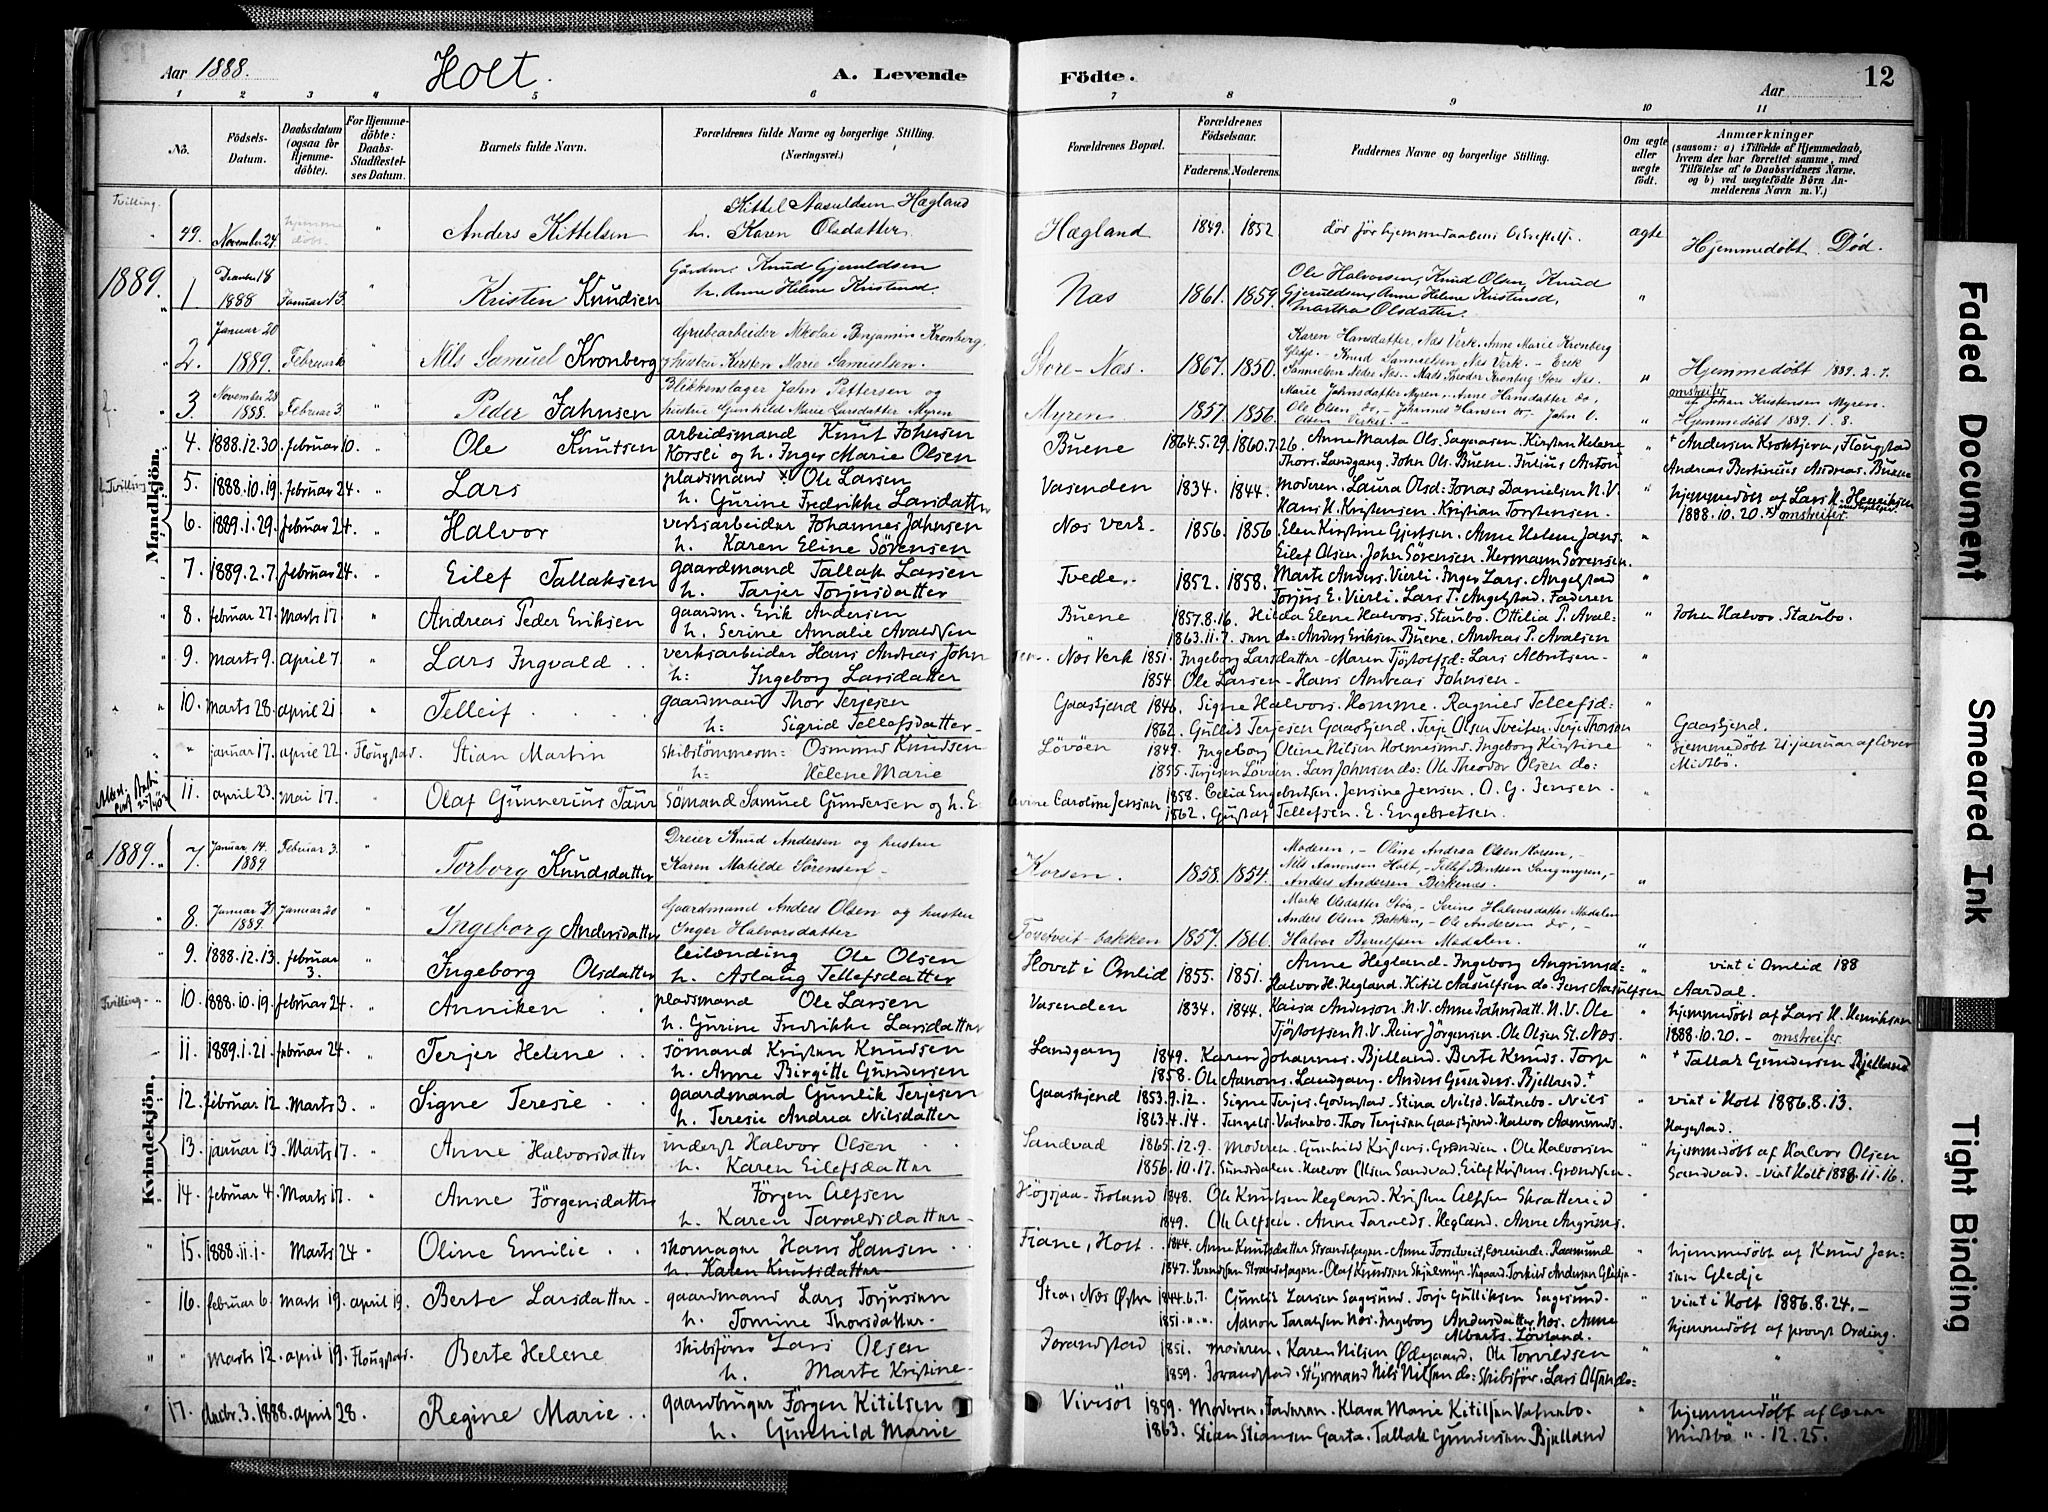 Aar 1888. Holt. A. Levende Födte. Aar 12
1 2 3 4 5 6 7 8 9 10 11
No. Födsels-Datum. Daabsdatum (ogsaa for Hjemmedöbte). For Hjemmedöbte: Daabs-Stadfestelses Datum. Barnets fulde Navn. Forældrenes fulde Navne og borgerlige Stilling. (Næringsvei.) Forældrenes Bopæl. Forældrenes Födselsaar. Faderens. Moderens. Faddernes Navne og borgerlige Stilling. Om ægte eller uægte födt. Anmærkninger (saasom: a) i Tilfælde af Hjemmedaab, hvem der har forrettet samme, med Tilföielse af to Daabsvidners Navne, og b) ved uægtefödte Börn Anmelderens Navn m. V.)
Mandkjön.
Tvilling. Kittel Aasuldsen Hægland
49. November 24 hjemmedöbt " Anders Kittelsen h. Karen Olsdatter. Hægland 1849. 1852 död før hjemmedaabens bekræftelse. ægte Hjemmedöbt. Död.
1889. December 18 Gårdm. Knud Gjeruldsen Ole Halvorsen, Knud Olsen, Knud
1 1888 Januar 13. " Kristen Knudsen h. Anne Helene Kristensd. Næs 1861. 1859. Gjeruldsen, Anne Helene Kristensd, "
Martha Olsdatter.
Januar 20 Grubearbeider Nikolai Benjamin Kronberg, Karen Hansdatter, Næs Verk. Anne Marie Kronberg
2. 1889. Februar Nils Samuel Kronberg Hustru Kirsten Marie Samuelsen. Store-Næs. 1867. 1850. Gledje. - Knud Samuelsen Næs Verk - Erik " Hjemmedöbt 1889.2.7.
Samuelsen Nedre Næs. - Mads Theodor Kronberg Store Næs.
3. November 28 1888. Februar 3. " Peder Jahnsen Blikkenslager Jahn Pettersen og Marie Jahnsdatter Myren, - Anne Hansdatter do, omstreifer
hustru Gunhild Marie Larsdatter Myren Myren. 1857. 1856. Ole Olsen do, - Johannes Hansen do - Jahn O. af Johan Kristensen Myren.
Olsen " Hjemmedöbt 1889.1.8.
4. 1888.12.30. februar 10. " Ole Knutsen arbeidsmand Knut Johnsen Buene 1864.5.29. 1860.7.26. Anne Marta Ols. Sagaasen. Kirsten Helene " + Andersen Krokbjern, Flougstad
Korsli og h. Inger Marie Olsen Thors. Landgang. John Ols. Buene. Julius Anton Andreas Bertinius Andreas. Buene
5. 1888.10.19. februar 24. " Lars pladsmand x Ole Larsen Vasenden 1834. 1844. Moderen. Laura Olsd: Jonas Danielsen N.V. " hjemmedöbt af Lars H. Henriksen
Tvilling h. Gurine Fredrikke Larsdatter Hans H. Kristensen. Kristian Torstensen. 1888.10.20. x) omstreifer
6. 1889.1.29. februar 24. " Halvor verksarbeider Johannes Jahnsen Næs Verk. 1856. 1856. Elen Kirstine Gjertsen. Anne Helene Jans. "
h. Karen Eline Sörensen Eilef Olsen. John Sörensen. Hermann Sörensen.
7. 1889.2.7. februar 24. " Eilef Tallaksen gaardmand Tallak Larsen Tvede. 1852. 1858. Marte Anders. Vierli. Inger Lars. Angelstad "
h. Tarjer Torjusdatter Torjus E. Vierli. Lars T. Angelstad. Faderen
8. februar 27. Marts 17. " Andreas Peder Eriksen gaardm. Erik Andersen Buene 1857.8.16. Hilda Elene Halvors. Staubo. Ottilia P. Aval= " John Halvor. Staubo.
h. Serine Amalie Avaldsen 1863.11.7. sen do: Anders Eriksen Buene. Andreas P. Avalsen
9. Marts 9. april 7. " Lars Ingvald verksarbeider Hans Andreas John sen. Næs Verk 1851. Ingeborg Larsdatter - Maren Tjöstolfsd: Lars Albretsen - "
h: Ingeborg Larsdatter 1854 Ole Larsen - Hans Andreas Johnsen -
10. Marts 28. april 21 " Telleif gaardmand Thor Terjesen Gaaskjend 1846. Signe Halvors. Homme. Ragnild Tellefsd= "
h: Sigrid Tellefsdatter 1862. Gullik Terjesen Gaaskjend. Terje Olsen Tveiten. Terje Thorsen Gaaskjend.
" januar 17. april 22. Flougstad. Stian Martin skibstömmerm: Osmund Knudsen Lövöen 1849. Ingeborg Oline Nilsen Holmesund. Ingeborg Kirstine " hjemmedöbt 21 januar af
h: Helene Marie 1855. Terjesen Lövöen. Lars Johnsen do: Ole Theodor Olsen do: Midtbö
11. april 23. Mai 17. " Olaf Gunnerius Taur sömand Samuel Gundersen og h. E= Caroline Jensen 1858. Celia Engebretsen. Jensine Jensen. O. G. Jensen. "
1862. Gustaf Tellefsen. E. Engebretsen.
Kvindekjön.
1889. 7. Januar 14. 1889. Februar 3. " Torborg Knudsdatter Dreier Knud Andersen og hustru Korsen. 1858. 1854. Moderen, - Oline Andrea Olsen Korsen, -
Karen Matilde Sörensen - Nils Aanonsen Holt, - Tellef Bentsen Langmyren, - "
Anders Andersen Birkenes.
8. Januar 1889. Januar 20 " Ingeborg Andersdatter Gaardmand Anders Olsen og hustru Fossetveit-bakken 1857. 1861. Marte Olsdatter Stöa, - Serine Halvorsdatter Madalen
Inger Halvorsdatter Anders Olsen Bakken, - Ole Andersen do, -
Halvor Berulfsen Madalen. "
9. 1888.12.13. februar 3. " Ingeborg Olsdatter leilænding Ole Olsen Hovet i Omlid 1855. 1851. Anne Hegland. Ingeborg Angrimsd= " viet i Omlid 188
h. Aslaug Tellefsdatter Halvor H. Hegland. Kitil Aasulfsen do. Jens Aasulfsen Aardal.
Tvilling - 10. 1888.10.19. februar 24. " Anniken pladsmand Ole Larsen Vasenden 1834. 1844. Kaisa Anderson. N.V. Anne Jahnsdatt. N.V. Ole " hjemmedöbt af Lars H. Henriksen
h. Gurine Fredrikke Larsdatter Tjöstolfsen N.V. Reier Jörgensen. Ole Olsen St. Næs. 1888.10.20. - omstreifer
11. 1889.1.21. februar 24. " Terjer Helene sömand Kristen Knudsen Landgang 1849. Karen Johannes. Bjelland. Berte Knuds. Torp " + Tallak Gundersen Bjelland
h. Anne Birgitte Gundersen 1858. Ole Aanons. Landgang. Anders Gunders. Bjelland. +
12. februar 12. Marts 3. " Signe Teresie gaardmand Gunlik Terjesen Gaaskjend 1853.9.12. Signe Terjes. Godenstad. Stina Nilsd. Vatnebo. Nils " viet i Holt 1886.8.13.
h. Teresie Andrea Nilsdatter 1863.4.14. Tengels. Vatnebo. Thor Terjesen Gaaskjend. Halvor Aamunds. Hagestad.
13. januar 13. Marts 17. " Anne Halvorsdatter inderst Halvor Olsen Sandvad 1865.12.9. Moderen. Gunhild Kristens. Grændsen. Ole Halvorsen " hjemmedöbt af Halvor Olsen
h. Karen Eilefsdatter 1856.10.17. Sundsdalen. Halvor Olsen Sandvad. Eilef Kristens. Grændsen. Sandvad. - viet Holt 1888.11.16.
14. februar 4. Marts 17. " Anne Jörgensdatter Jörgen Alfsen Högsjaa-Froland 1848. Ole Knutsen Hegland. Kristen Alfsen Skratereid "
h. Karen Taraldsdatter. 1849. Ole Alfsen. Anne Taralds. Hegland. Anne Angrims.
15. 1888.11.1. Marts 24 " Oline Emilie skomager Hans Hansen Fiane, Holt 1844. Anne Knutsdatter Strandefagen - Anne Fossetveit, Raamund " hjemmedöbt af Knud Jen-
h. Karen Knutsdatter 1847. Svendsen Strandefagen - Olaf Knudsen Skjulemyr. Torkild Andersen Gledje sen Gledje
16. februar 6. Marts 19. april 19. Berte Larsdatter gaardmand Lars Torjussen Stea, Næs Østre 1844.6.7. Gunlik Larsen Sagesund. Terje Gulliksen Sagesund. " viet i Holt 1886.8.24. -
h. Tomine Thorsdatter. 1851. " " Aanon Taraldsen Næs. Ingeborg Andersdatter Næs. Anne Alberts. Lövland. hjemmedöbt af provst Ording.
" Marts 12. april 19. Flougstad. Berte Helene skibsförer Lars Olsen Torandstad 1851. Moderen. Karen Nilsen Ødegaard. Ole Torvildsen " "
h. Marte Kristine 1859. Torandstad. Styrmand Nils Nilsen do: Skibsför. Lars Olsen do:
17. decbr. 3. 1888. april 28. Regine Marie gaardbruger Jörgen Kitilsen Vivesöl 1859. Moderen. Faderen. Klara Marie Kitilsen Vatnebo. " hjemmedöbt af
h. Gunhild Marie 1863. Stian Stiansen Garta. Tallak Gundersen Bjelland Midtbö " 12.25.
Faded Document
Smeared Ink
Tight Binding